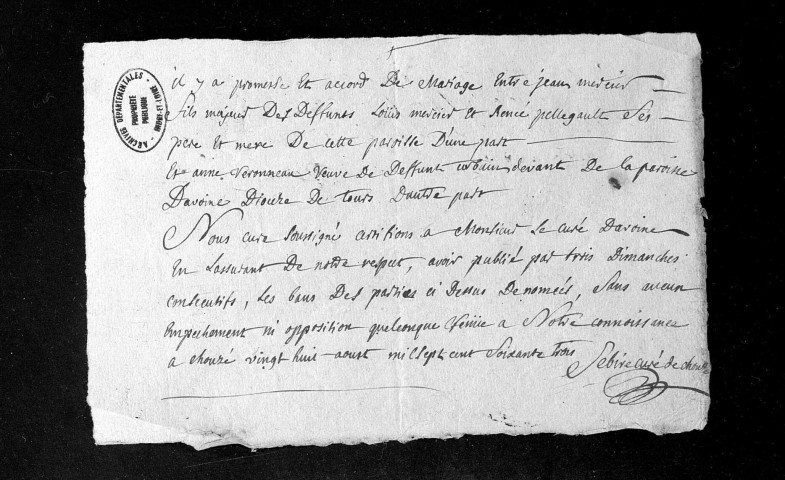 ARCHIVES DÉPARTEMENTALES
PROPRIÉTÉ
PUBLIQUE
INDRE-ET-LOIRE
il y a promesse Et accord De Mariage Entre jean mercier
fils majeur Des Deffunts Loüis mercier Et Renée pellegault Ses
pere Et mere De cette paroisse D'une part
Et anne Veronneau Veuve de Deffunt urbain devant De la paroisse
Davoine Dioceze De tours Dautre part
Nous curé soussigné certifions a Monsieur Le curé Davoine
En Lassurant De notre respect, avoir publié par trois Dimanches
consecutifs, Les bans Des parties ci Dessus Denomées, Sans aucun
Empechement ni opposition quelconque Veniie a Notre connoissance
a chouzé vingt huit aoust mil sept cent Soixante trois Sebire curé de chouzé